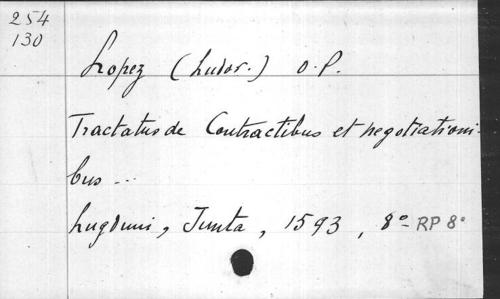 254
130
Lopez (Ludov.) O.P.
Tractatus de Contractibus et negotiationi-
bus ...
Lugduni, Junta, 1593, 8° RP 8°